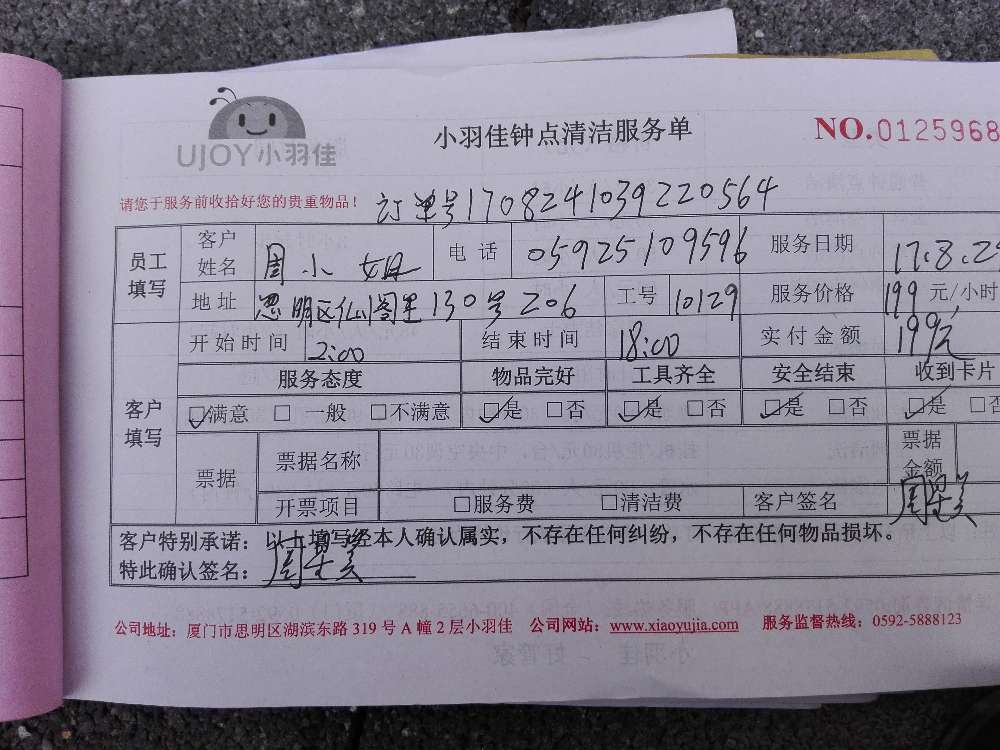 UJOY小羽佳
小羽佳钟点清洁服务单
NO.0125968
请您于服务前收拾好您的贵重物品！ 订单号1708241039220564
员工填写 客户姓名 周小姐 电话 05925109596 服务日期 17.8.2
地址 思明区仙阁里130号206 工号 10129 服务价格 199 元/小时
开始时间 2:00 结束时间 18:00 实付金额 199元
客户填写 服务态度 物品完好 工具齐全 安全结束 收到卡片
☑满意 □一般 □不满意 ☑是 □否 ☑是 □否 ☑是 □否 ☑是 □否
票据 票据名称 票据金额
开票项目 □服务费 □清洁费 客户签名 周
客户特别承诺：以上填写经本人确认属实，不存在任何纠纷，不存在任何物品损坏。
特此确认签名：周
公司地址：厦门市思明区湖滨东路319号A幢2层小羽佳 公司网站：www.xiaoyujia.com 服务监督热线：0592-5888123